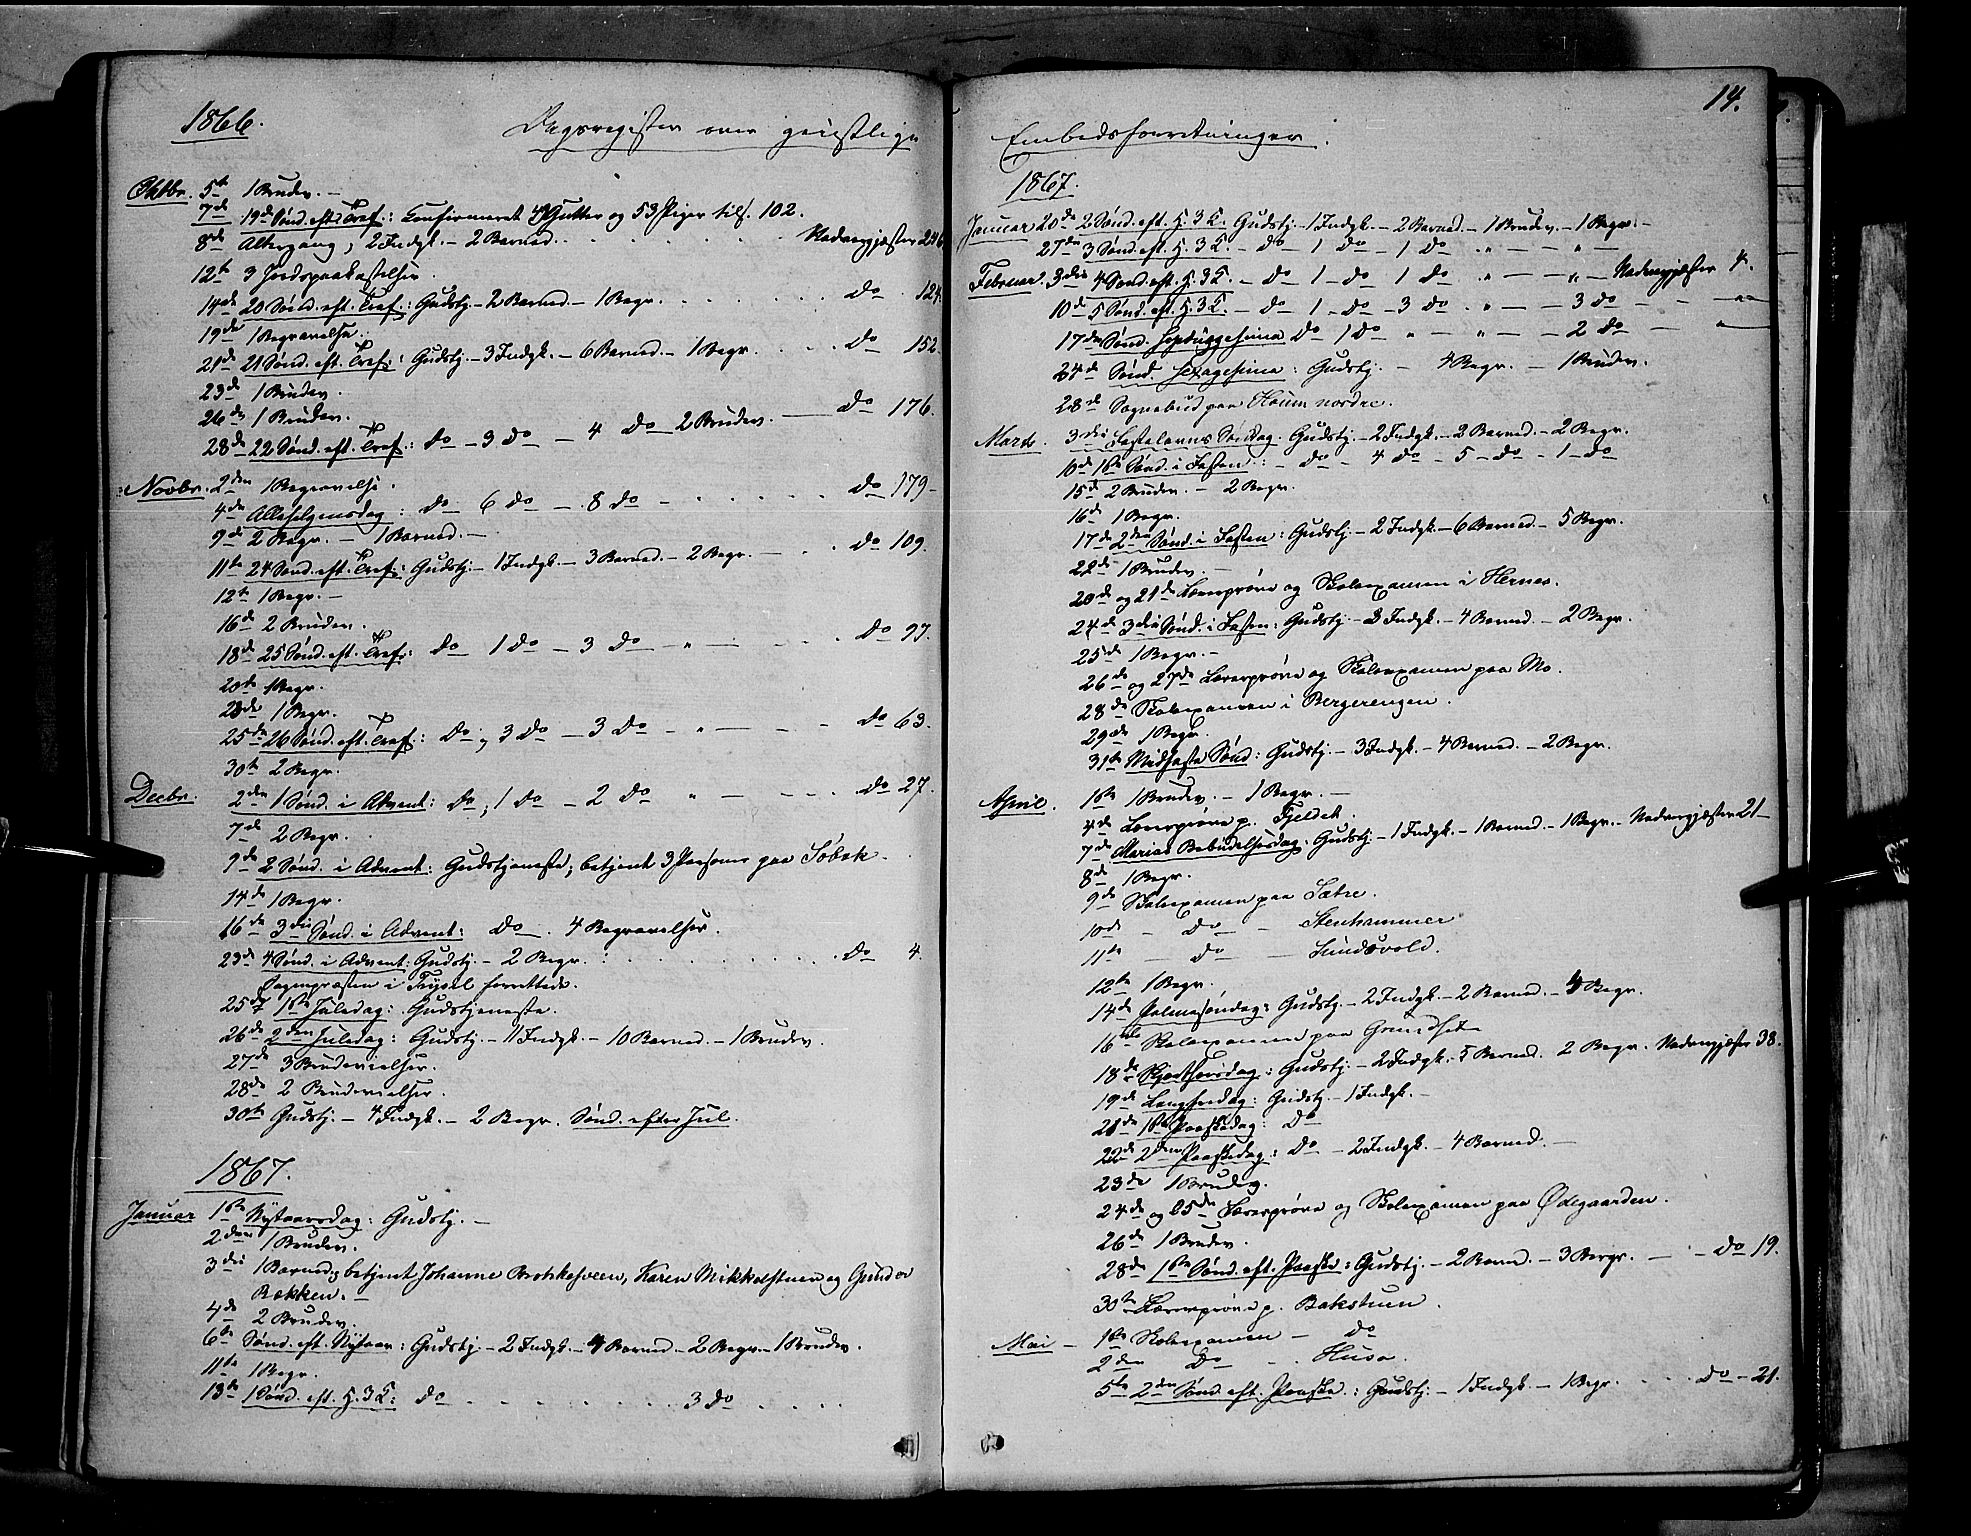 1866.
Dagsregister over geistlige
Oktbr. 5te 1 Brudev. –
7de 19de Sønd. eft. Tref.: Confirmeret 49 Gutter og 53 Piger tils. 102.
8de Altergang, 2 Indgk. – 2 Barned. . . . . Nadvergjæster 246
12te 3 Jordspaakastelser
14de 20 Sønd. eft. Tref.: Gudstj. – 2 Barned. – 1 Begr. . . . . Do 124.
19de 1 Begravelse.
21de 21 Sønd. eft. Tref.: Gudstj. – 3 Indgk. – 6 Barned. – 1 Begr. . . . Do 152.
23de 1 Brudev.
26de 1 Brudev.
28de 22 Sønd. eft. Tref.: Do – 3 Do – 4 Do – 2 Brudev. — Do 176.
Novbr. 2den 1 Begravelse.
4de Allehelgensdag: Do – 6 Do – 8 Do – . . . . . Do 179 –
9de 2 Begr. – 1 Barned. –
11te 24 Sønd. eft. Tref.: Gudstj. – 1 Indgk. – 3 Barned. – 2 Begr. — . . Do 109.
12te 1 Begr. –
16de 2 Brudev.
18de 25 Sønd. eft. Tref.: Do 1 Do – 3 Do – „ — . . Do 97.
20de 1 Begr.
23de 1 Begr.
25de 26 Sønd. eft. Tref.: Do, 3 Do – 3 Do – „ — – Do 63.
30te 2 Begr.
Decbr. 2den 1 Sønd. i Advent: Do, 1 Do – 2 Do „ – – – . . . Do 27.
7de 2 Begr.
9de 2 Sønd. i Advent: Gudstjeneste; betjent 3 Personer paa Sobak.
14de 1 Begr.
16de 3die Sønd. i Advent: Do. 4 Begravelser.
23de 4 Sønd. i Advent: Gudstj. – 2 Begr. . . . . . Do 4.
Sognepræsten i Trysil forrettede.
25de 1ste Juledag: Gudstjeneste.
26de 2den Juledag: Gudstj. – 11 Indgk. – 10 Barned. – 1 Brudev.
27de 3 Brudevielser.
28de 2 Brudevielser.
30te Gudstj. – 4 Indgk. – 2 Begr. Sønd. efter Jul.
1867.
Januar 1ste Nytaarsdag: Gudstj. –
2den 1 Brudev.
3die 1 Barned. betjent Johanne Brohkesveen, Karen Mikkelstuen og Gunder
Bakken. –
4de 2 Brudev.
6te Sønd. eft. Nytaar: Gudstj. – 2 Indgk. – 4 Barned. – 2 Begr. – 1 Brudev.
11te 1 Begr.
13de 1 Sønd. eft. H. 3 K: Do . . . . . 3 Do . . . .
14.
Embedsforretninger.
1867.
Januar 20de 2 Sønd. eft. H. 3 K. Gudstj. 1 Indgk. – 2 Barned. – 1 Brudev. – 1 Begr. –
27de 3 Sønd. eft. H. 3 K. – Do – 1 Do – 1 Do „ – — „ —
Februar. 3die 4 Sønd. eft. H. 3 K. – Do – 1 – Do 1 Do „ – — „ — Nadvergjæster 4.
10de 5 Sønd. eft. H. 3 K. – Do – 1 – Do – 3 Do – „ – — 3 Do — – „
17de Sønd. Septuagesima Do – 1 Do „ – „ – — 2 Do — „
24de Sønd. Sexagesima: Gudstj. – 4 Begr. – 1 Brudev.
28de Sognebud paa Houm nordre.
Marts. 3die Fastelavns Søndag. Gudstj. – 2 Indgk. – 2 Barned. – 2 Begr.
10de 1ste Sønd. i Fasten: – Do – 4 Do – 5 – Do – 1 – Do
15de 2 Brudev. – 2 Begr.
16de 1 Begr.
17de 2den Sønd. i Fasten: Gudstj. – 2 Indgk. – 6 Barned. – 5 Begr.
22de 1 Brudev. –
20de og 21de Læseprøve og Skoleexamen i Hernes.
24de 3die Sønd. i Fasten: Gudstj. – 3 Indgk. – 4 Barned. – 2 Begr.
25de 1 Begr. –
26de og 27de Læseprøve og Skoleexamen paa Mo.
28de Skoleexamen i Bergerengen.
29de 1 Begr.
31te Midfaste Sønd: Gudstj. – 3 Indgk. – 4 Barned. – 2 Begr.
April. 1ste 1 Brudev. – 1 Begr. —
4de Læseprøve p. Fjeldet.
7de Mariæ Bebudelsesdag. Gudstj. – 1 Indgk. – 1 Barned. – 1 Begr. – Nadvergjæster 21 –
8de 1 Begr.
9de Skoleexamen paa Sætre.
10de – Do – Stenhammer
11te – Do — Sundsvold.
12te 1 Begr.
14de Palmesøndag: Gudstj. – 2 Indgk. – 2 Barned. – 4 Begr.
16de Skoleexamen paa Grundset
18de Skjærthorsdag: Gudstj. – 2 Indgk. 5 Barned. 2 Begr. Nadvergjæster 38.
19de Langfredag: Gudstj. – 1 Indgk. –
21de 1ste Paaskedag: Do
22de 2den Paaskedag: Do – 2 Indgk. – 4 Barned. —
23de 1 Brudev.
24de og 25de Læseprøve og Skoleexamen paa Ødegaarden.
26de 1 Brudev.
28de 1ste Sønd. eft. Paaske: Gudstj. – 2 Barned. – 3 Begr. — – – Do 19.
30te Læseprøve p. Bakstuen.
Mai – 1ste Skoleexamen – Do
2den Do – . Husa.
5te 2den Sønd. eft. Paaske.: Gudstj. – 1 Indgk. – 1 Begr. . . . . Do – 21.